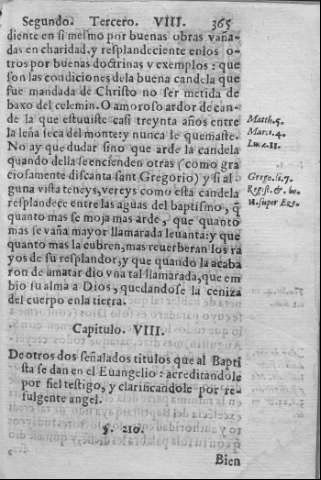 Segundo. Tercero. VIII. 365
diente en si mesmo por buenas obras vaña-
das en charidad, y resplandeciente enlos o-
tros por buenas doctrinas y exemplos: que
son las condiciones dela buena candela que
fue mandada de Christo no ser metida de
baxo del celemin. O amoroso ardor de can-
de la que estuuiste casi treynta años entre
la leña seca del monte: y nunca le quemaste.
No ay que dudar sino que arde la candela
quando della se encienden otras (como gra
ciosamente discanta sant Gregorio) y si al-
guna vista teneys, vereys como esta candela
resplandece entre las aguas del baptismo, q̃
quanto mas se moja mas arde, y que quanto
mas se vaña mayor llamarada leuanta: y que
quanto mas la cubren, mas reuerberan los ra
yos de su resplandor, y que quando la acaba
ron de amatar dio vna tal llamarada, que em
bio su alma a Dios, quedandose la ceniza
del cuerpo enla tierra.
Matth. 5.
Marc. 4.
Luc. 11.
Grego. li. 7.
Regist. & ho.
11. super Eze.
Capitulo. VIII.
De otros dos señalados titulos que al Bapti
sta se dan en el Euangelio: acreditandole
por fiel testigo, y clarificandole por re-
fulgente angel.
§. 210.
Bien